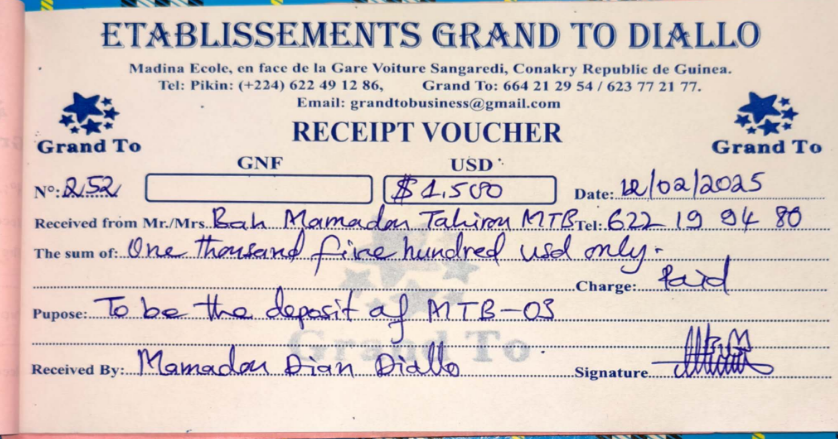 ETABLISSEMENTS GRAND TO DIALLO
Madina Ecole, en face de la Gare Voiture Sangaredi, Conakry Republic de Guinea.
Tel: Pikin: (+224) 622 49 12 86, Grand To: 664 21 29 54 / 623 77 21 77.
Email: grandtobusiness@gmail.com
Grand To
RECEIPT VOUCHER
Grand To
GNF USD
N°: 252 $ 1.500 Date: 12/02/2025
Received from Mr./Mrs. Bah Mamadou Tahirou MTB Tel: 622 19 94 80
The sum of: One thousand five hundred usd only.
Charge: Paid
Pupose: To be the deposit of MTB-03
Grand To
Received By: Mamadou Dian Diallo Signature